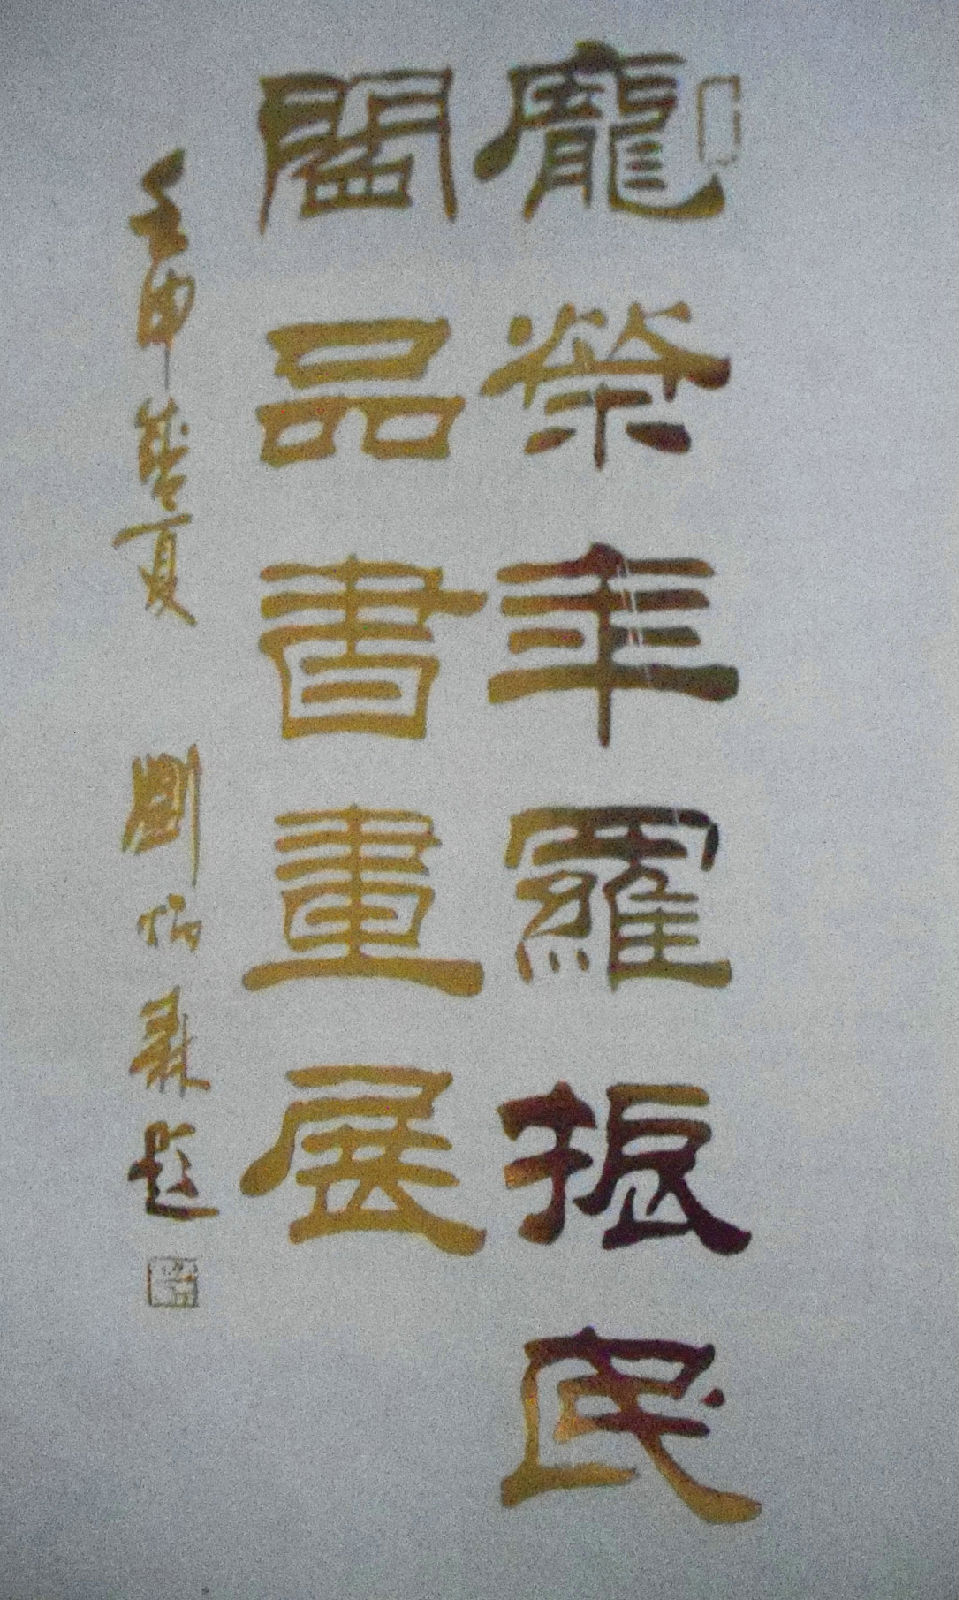 龐榮年羅振民
闔品書畫展
壬申夏 劉炳森題